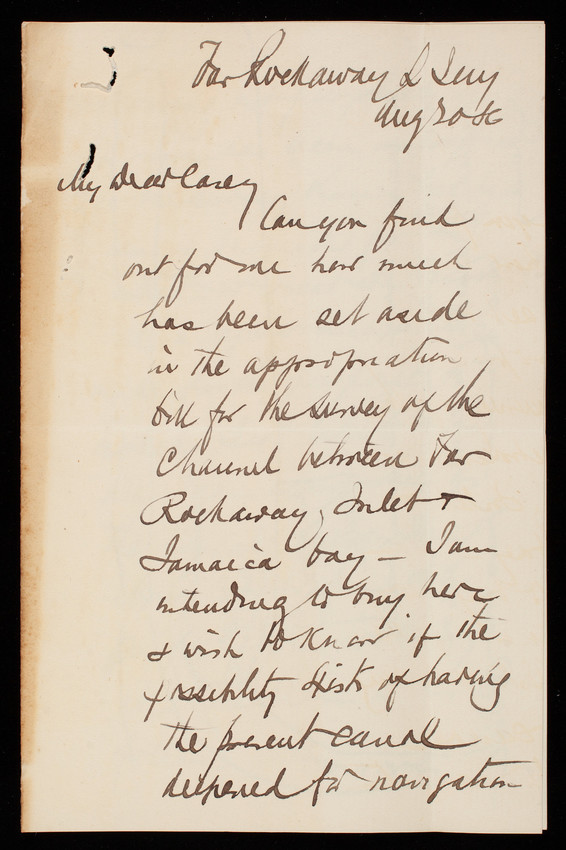 Far Rockaway L
Aug 30 86
My Dear Casey
Can you find
out for me how much
has been set aside
in the appropriation
bill for the survey of the
Channel between Far
Rockaway Inlet &
Jamaica bay — I am
intending to buy here
& wish to know if the
possibility exists of having
the present canal
deepened for navigation